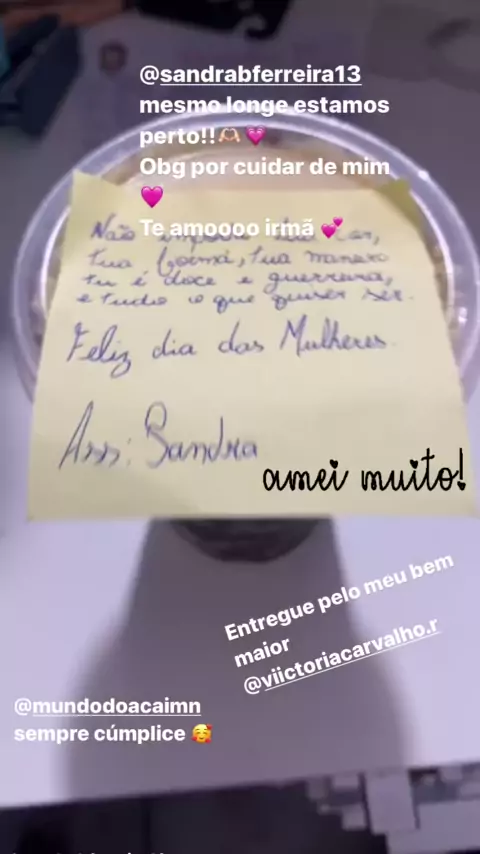 @sandrabferreira13
mesmo longe estamos
perto!!🫶🏼💗
Obg por cuidar de mim
💗
Te amoooo irmã 💕
Não importa tua cor,
tua forma, tua maneira
tu é doce e guerreira,
e tudo o que quiser ser.
Feliz dia das Mulheres.
Ass: Sandra
amei muito!
Entregue pelo meu bem
maior
@viictoriacarvalho.r
@mundodoacaimn
sempre cúmplice 🥰